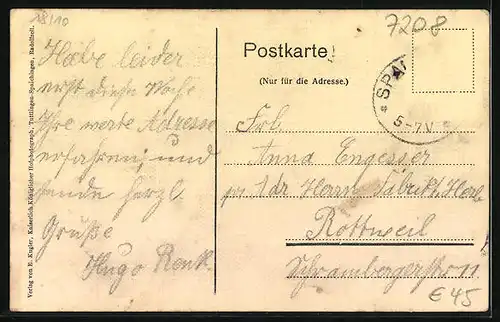 18/10
Habe leider
erst diese Woche
Ihre werte Adresse
erfahren und
sende herzl.
Grüße
Hugo Renk
Verlag von E. Kugler, Kaiserlich.Königlicher Hofphotograph, Tuttlingen-Spaichingen, Radolfzell.
Postkarte
(Nur für die Adresse.)
7208
* SPAI
5-7N
Frl.
Anna Engesser
Herrn Fabrikt.
Rottweil
Schrambergerstr. 11
€ 45